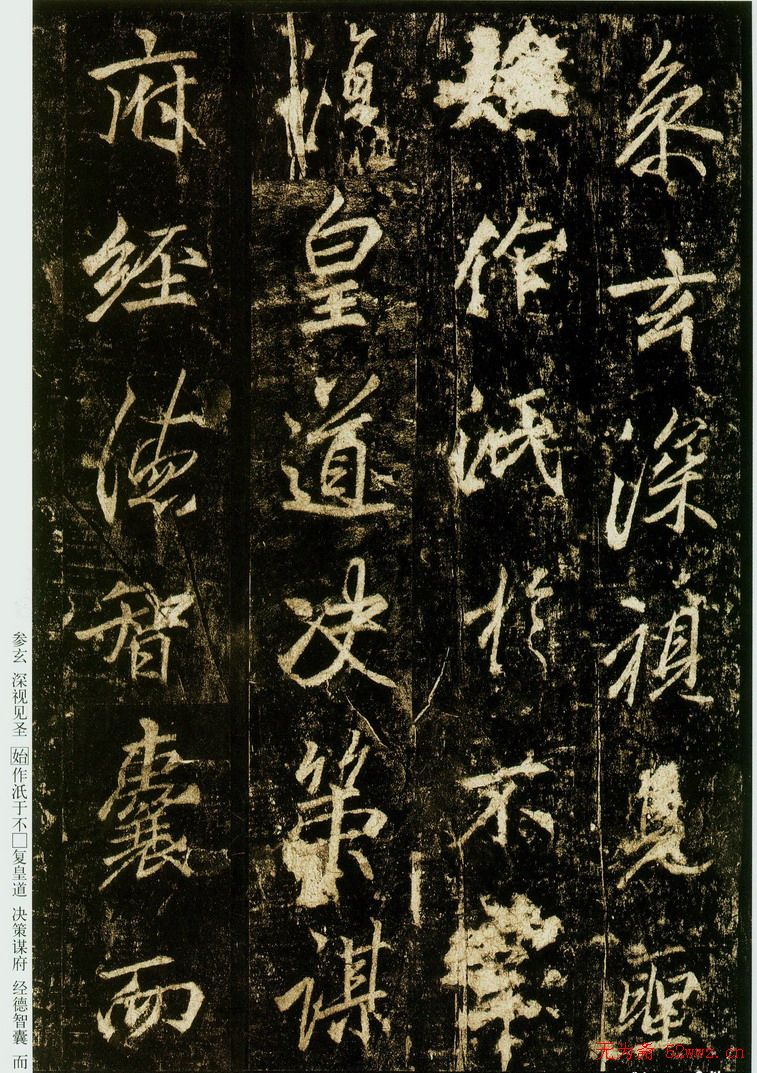 叅玄深視見聖
作泜於不
復皇道决策謀
府經德智囊而
参玄 深视见圣 始作泜于不□复皇道 决策谋府 经德智囊 而
无为斋 62wwz.cn